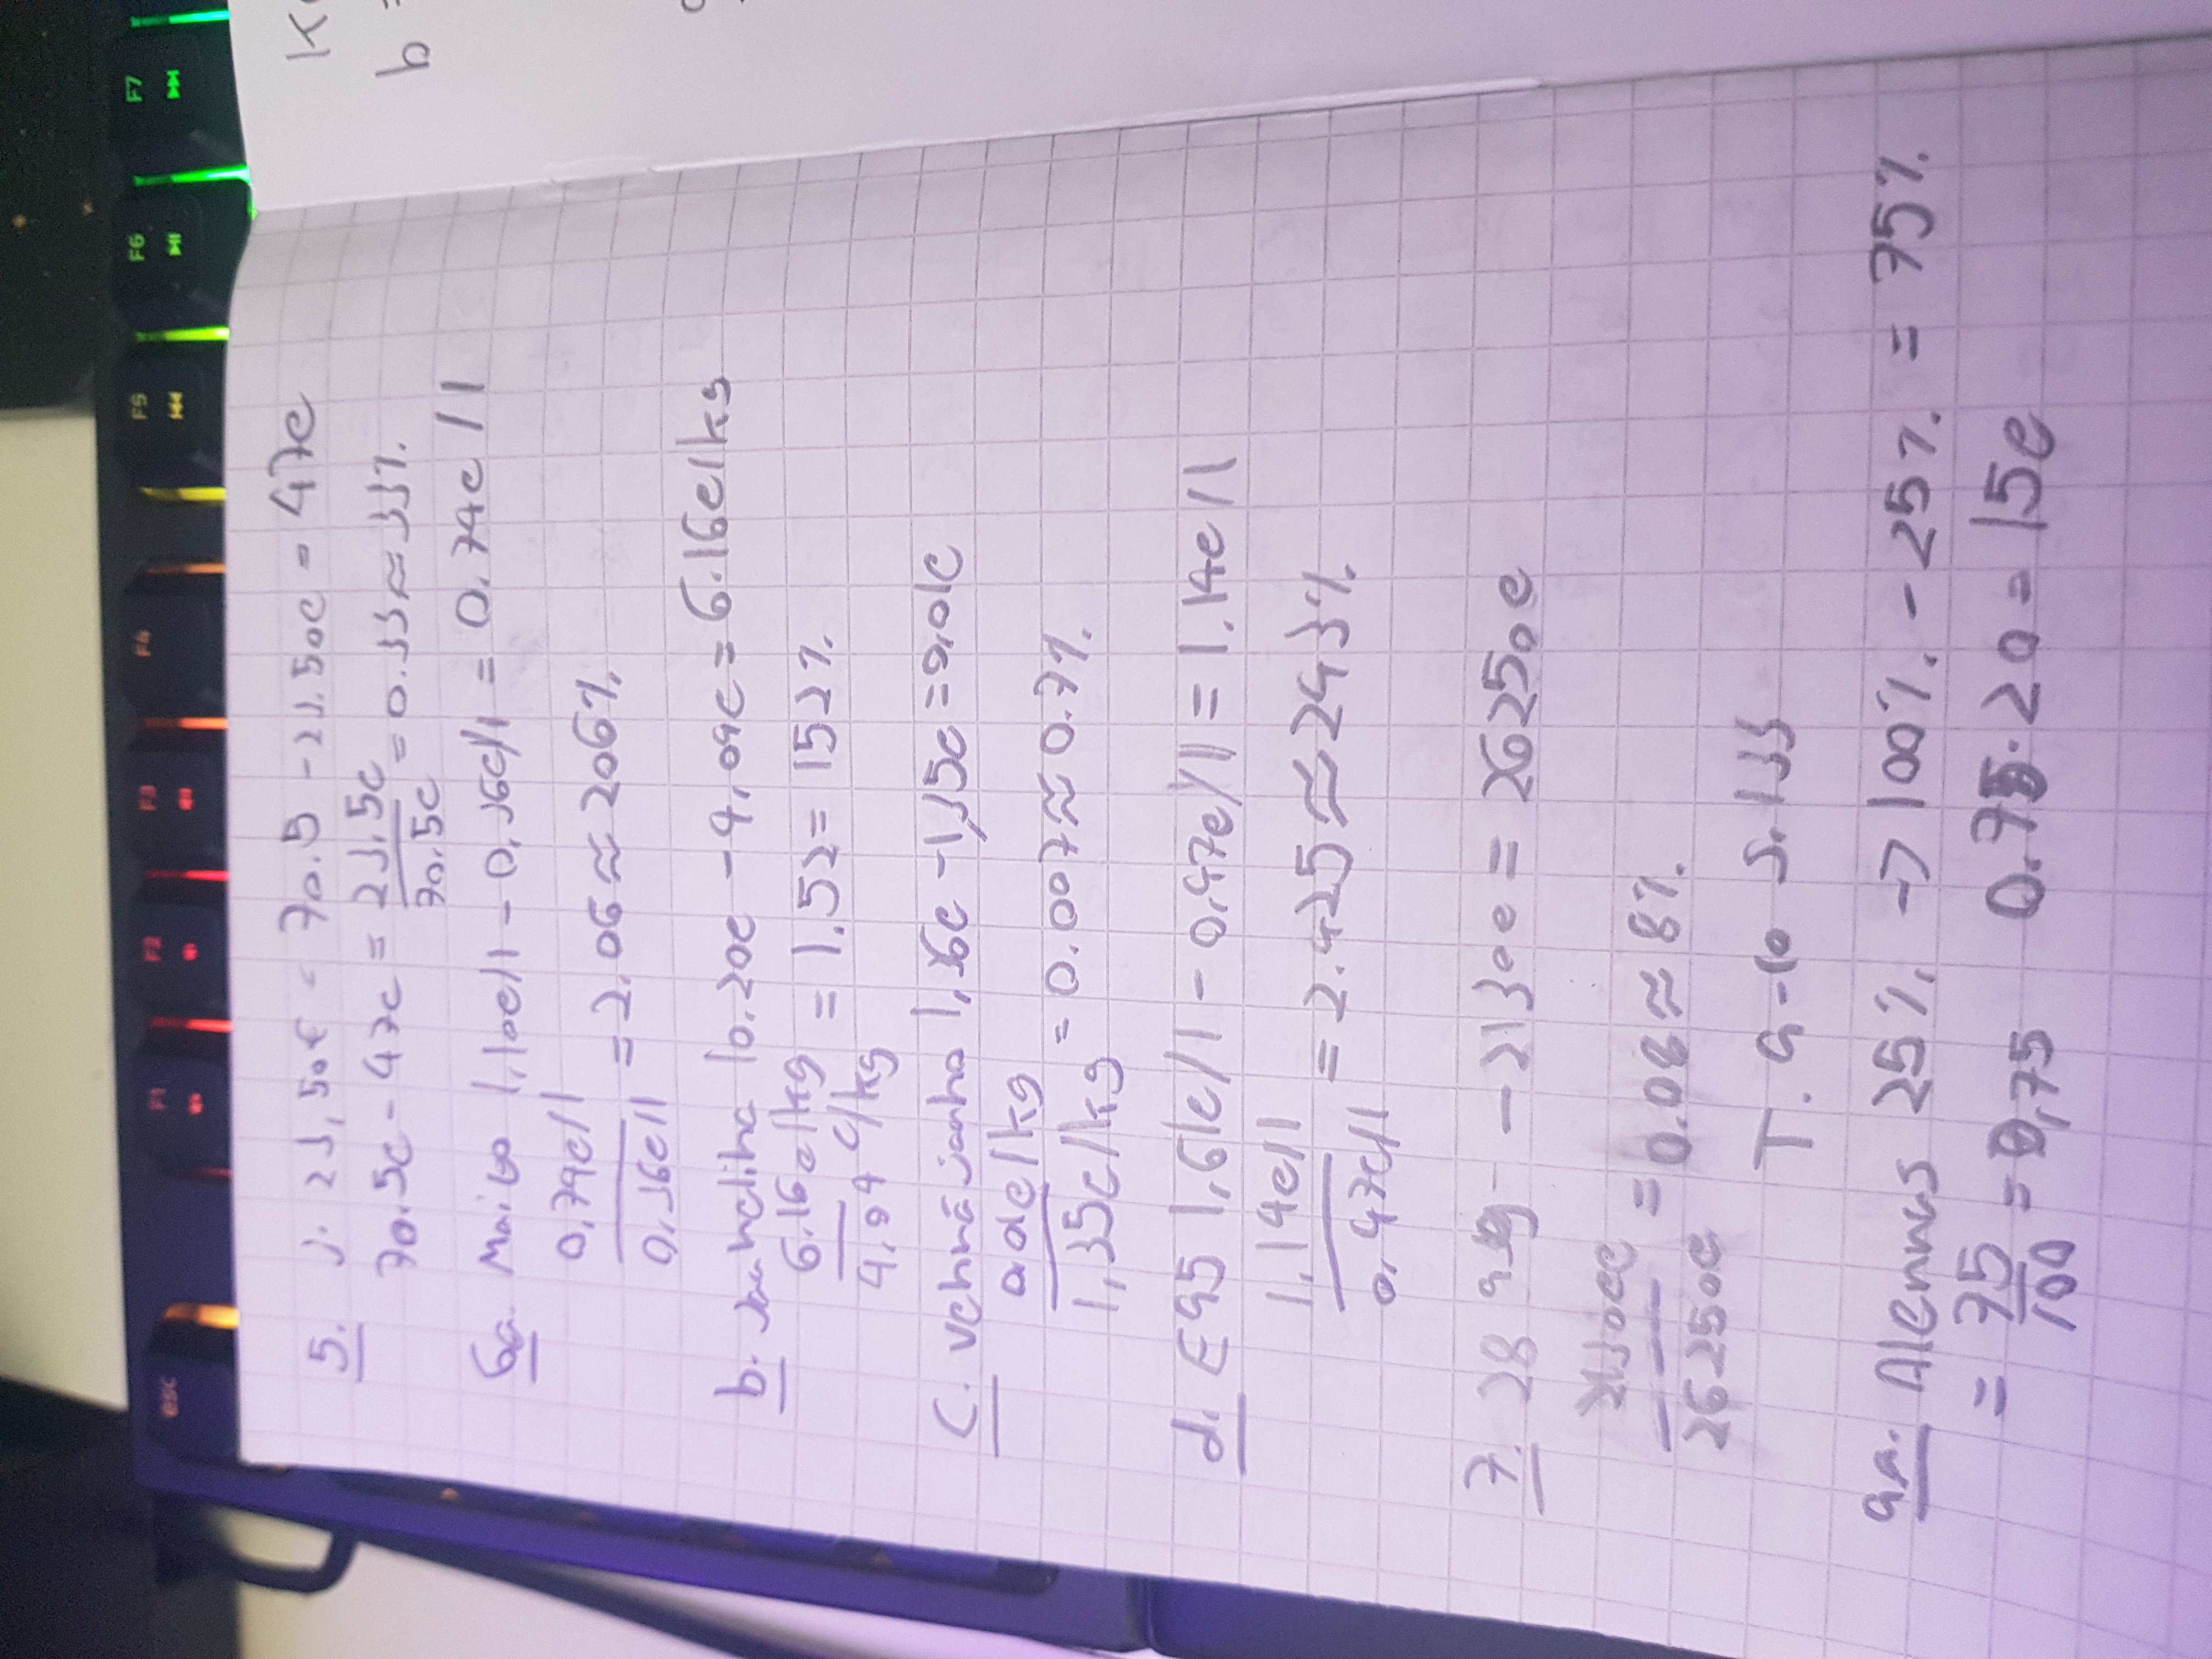 5. 3. 23,50€ = 70.5 - 23.50e = 47e
70.5e - 47e = 23,5e / 70.5e = 0.33 ≈ 33%.
6a. Maito 1,10e/l - 0,36e/l = 0.74e/l
0,74e/l / 0,36e/l = 2.06 ≈ 206%.
b. Jauheliha 10.20e - 4,04e = 6.16e/kg
6.16e/kg / 4,04 e/kg = 1.52 = 152%.
C. Vehnäjauho 1,36e - 1,35e = 0,01e
0,01e/kg / 1,35e/kg = 0.007 ≈ 0.7%.
d. E95 1,61e/l - 0,47e/l = 1.14e/l
1,14e/l / 0.47e/l = 2.425 ≈ 243%
7. 28 - 2130e = 26250e
2130e / 26250e = 0.08 ≈ 8%.
T. 9-10 S. 133
9a. Alennus 25%, → 100%. - 25%. = 75%.
= 75 / 100 = 0,75 0.75 · 20 = 15e
F1
F2
F3
F4
F5
F6
F7
esc
b =